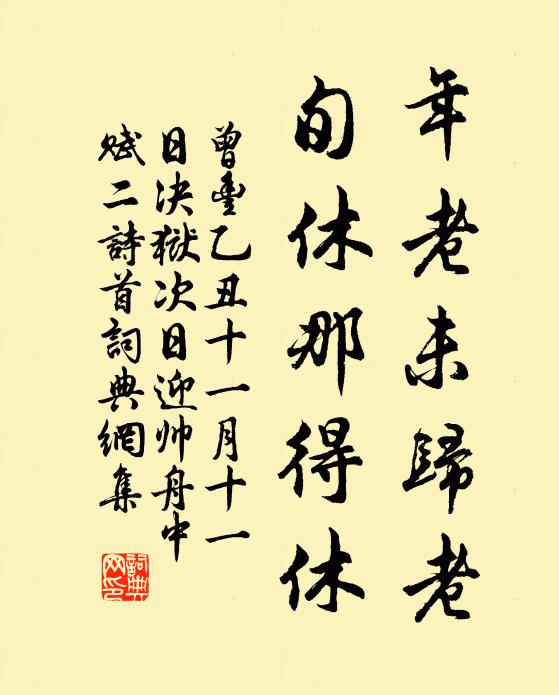 年老未歸老
旬休那得休
曾豐乙丑十一月十一
日決獄次日迎帅舟中
赋二詩首詞典網集
詞典
网印